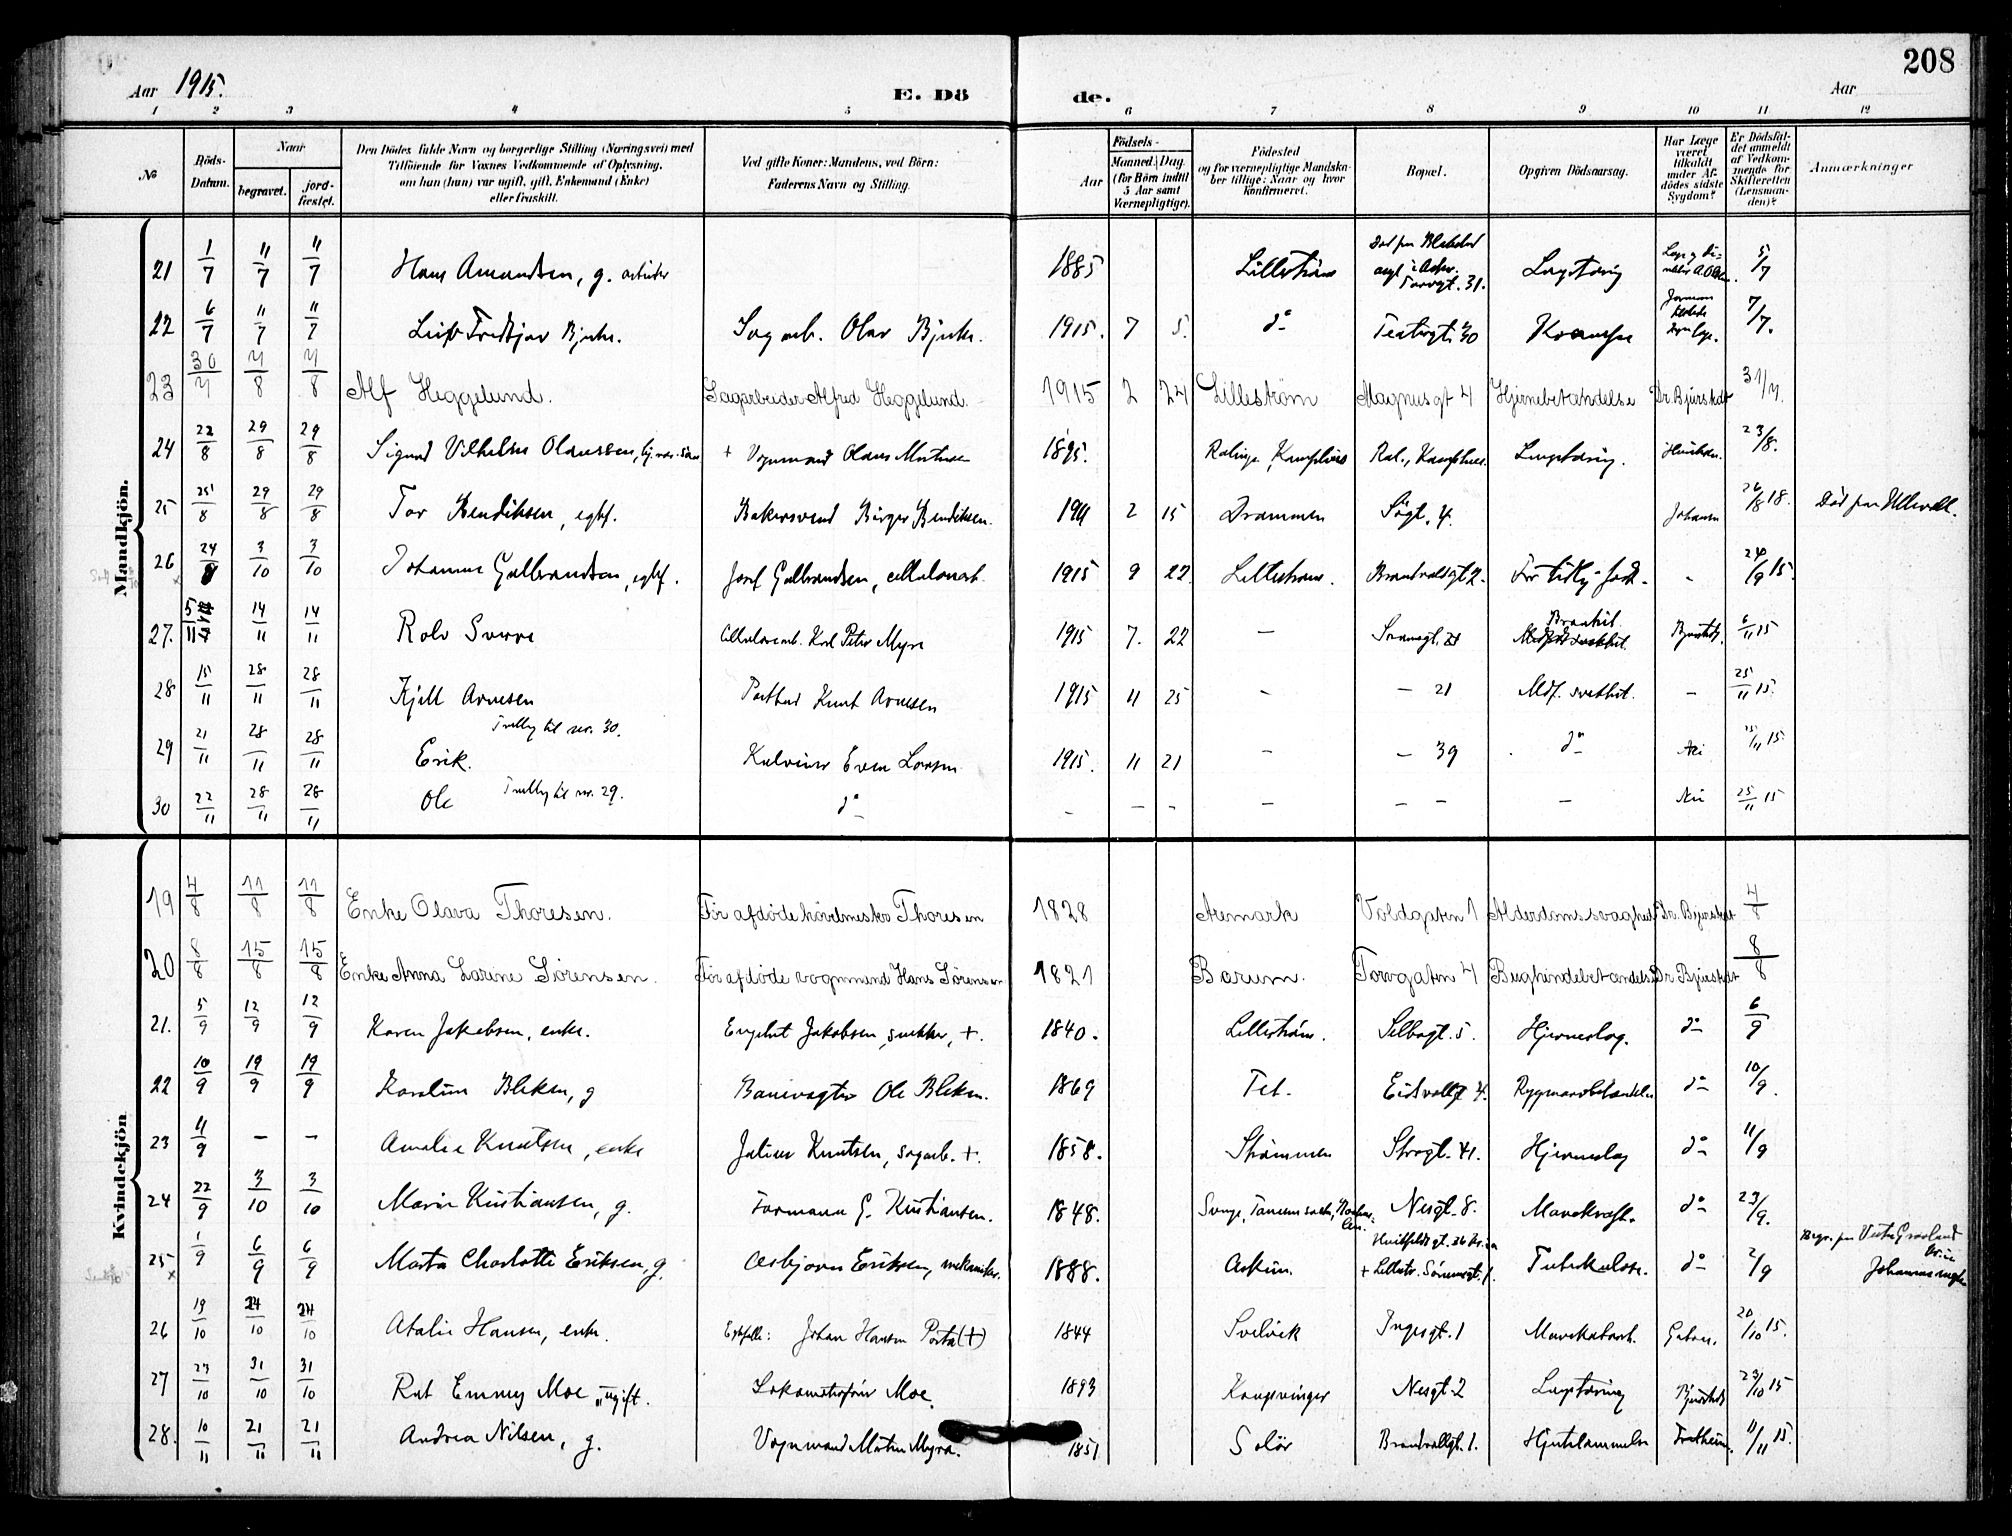 208
Aar 1915.
E. Dö de.
Aar
1 2 3 4 5 6 7 8 9 10 11 12
No
Döds-Datum.
Naar
begravet.
jord-fæstet.
Den Dödes fulde Navn og borgerlige Stilling (Næringsvei) med
Tilföiende for Voxnes Vedkommende af Oplysning,
om han (hun) var ugift, gift, Enkemand (Enke)
eller fraskilt.
Ved gifte Koner: Mandens, ved Börn:
Faderens Navn og Stilling.
Födsels-
Aar
Maaned. Dag.
(for Börn indtil
5 Aar samt
Værnepligtige).
Födested
og for værnepligtige Mandska-
ber tillige: Naar og hvor
Konfirmeret.
Bopæl.
Opgiven Dödsaarsag.
Har Læge
været
tilkaldt
under Af-
dödes sidste
Sygdom?
Er Dödsfal-
det anmeldt
af Vedkom-
mende for
Skifteretten
(Lensman-
den)?
Anmærkninger
Mandkjön.
21 1/7 11/7 11/7 Hans Amundsen, g. arbeider 1885 Lillestrøm Torvgt. 31. 5/7
22 6/7 11/7 11/7 Leif Fridtjov Bjerke. Sag arb. Olav Bjerke. 1915. 7 5. do Teatergt. 30 7/7.
23 30/7 7/8 7/8 Alf Heggelund. Sagarbeider Alfred Heggelund. 1915 2 24 Lilleström Magnusgt 4 Hjernebetændelse Dr. Bjürstedt 31/7.
24 22/8 29/8 29/8 Sigurd Vilhelm Olaussen, + Vognmand Olaus Mortensen 1895. Ral., Lungetæring. 23/8.
25 25/8 29/8 29/8 Tor Bendiksen, egtf. Bakersvend Birger Bendiksen. 2 15 Drammen 26/8 18. Død paa Ullevaal.
26 24/8 3/10 3/10 Johannes Gulbrandsen, egtf. Josef Gulbrandsen, cellulosearb. 1915 9 22. Lillestrøm. Brandvaldgt 2. For tidlig født. - 24/9 15.
27. 5/11 14/11 14/11 Rolv Sverre Cellulosearb. Karl Peter Myre 1915 7. 22 — 6/11 15
28 15/11 28/11 28/11 Kjell Arnesen Postbud Knut Arnesen 1915 4 25 - — 21 Medf. svakhet. - 25/11 15.
29 21/11 28/11 28/11 Erik. Tvilling til nr. 30. Even Larsen 1915. 11 21 - — 39 do Nei 25/11 15
30 22/11 28/11 28/11 Ole Tvilling til nr. 29. do - — - — — — — Nei 25/11 15
Kvindekjön
19 4/8 11/8 11/8 Enke Olava Thoresen. För afdöde hövelmester Thoresen 1828 Aremark Voldgaten 1 Alderdomssvaghed Dr. Bjürstedt 4/8
20 8/8 15/8 15/8 Enke Anna Larine Sørensen. För afdöde vognmand Hans Sørensen 1821 Bærum. Torvgaten 4 Bughindebetændelse Dr. Bjürstedt 8/8
21. 5/9 12/9 12/9 Karen Jakobsen, enke. Engebret Jakobsen, snekker, +. 1840. Lillestrøm. 5. Hjerneslag. do 6/9
22 10/9 19/9 19/9 Karoline Bleken, g Banevogter Ole Bleken. 1869 Fet. Eidsvoldgt 4. Rygmarvbetændelse do 10/9.
23 4/9 - - Amalie Knutsen, enke Julius Knutsen, sagarb. +. 1858. Strømmen Storgt. 41. Hjerneslag do 11/9
24 22/9 3/10 3/10 Marie Kristiansen, g. Formann G. Kristiansen. 1848. Nesgt. 8. Mavekræft. do 23/9.
25 1/9 6/9 6/9 Marta Charlotte Eriksen, g. Asbjørn Eriksen, mekaniker. 1888. Askim. Huitfeldtsgt. 36 Kr.ia + Lillestr. Tuberkulose. do 2/9 Begr. paa Vestre Gravlund Kr.ia
26 19/10 24/10 24/10 Atalie Hansen, enke. Egtefelle: Johan Hansen (+) 1844 Svelvik Ingesgt. 1 Mavekatarrh. 20/10 15.
27 23/10 31/10 31/10 Rut Emmy Moe, ugift. Lokomotivfører Moe. 1893 Kongsvinger Nesgt. 2 Lungetæring Bjürstedt 23/10 15
28. 10/11 21/11 21/11 Andrea Nilsen, g. Vognmand Martin Myra. 1851 Solør Brandvallgt. 1. Hjertelammelse Fretheim. 11/11 15.